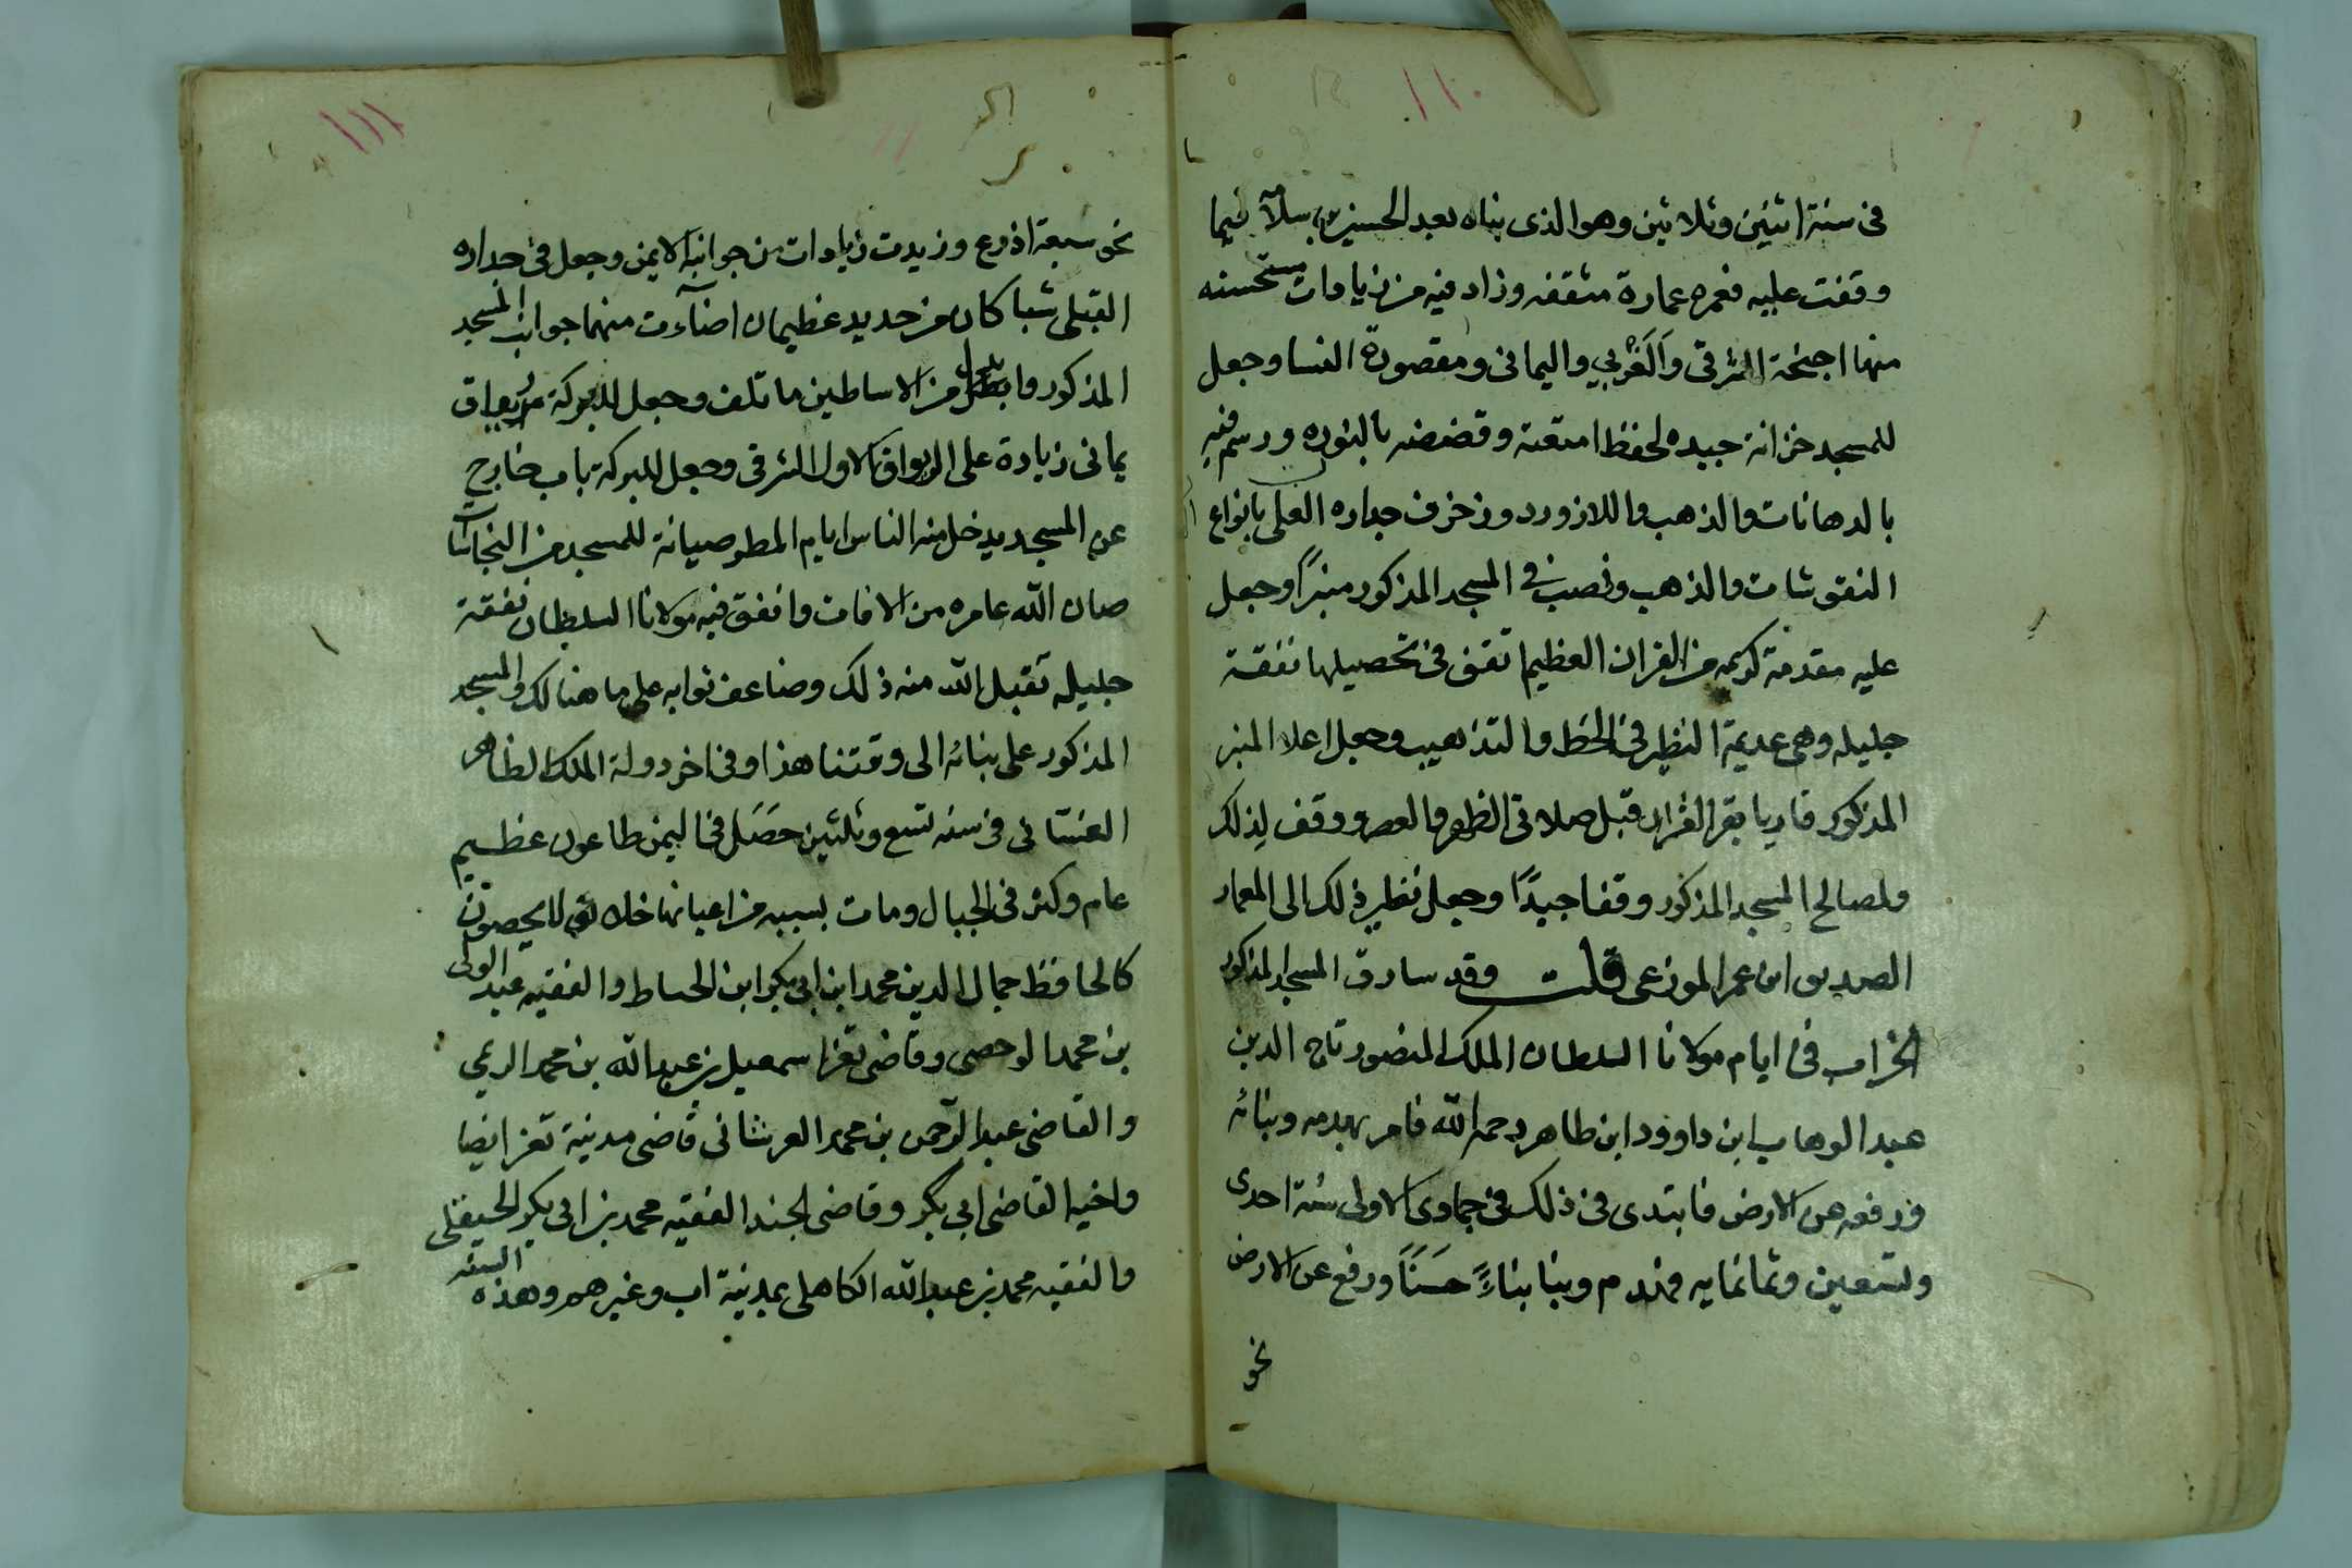 ١١٠
في سنة اثنين وثلاثين وهو الذي بناه بعد الحسين بن سلامة فيما
وقفت عليه فعمره عمارة متقنه وزاد فيه من زيادات مستحسنه
منها اجنحة الشرقي وَالَغْربي واليماني ومقصورة النسا وجعل
للمسجد خزانة جيده لحفظ امتعته وقضضه بالنوره ورسم فيه
بالدهانات والذهب واللازورد وزخرف جداره القبلي بانواع
النقوشات والذهب ونصب في المسجد المذكور منبرًا وجعل
عليه مقدمة كريمه من القران العظيم انفق في تحصيلها نفقة
جليله وهي عديمة النظير في الخط والتذهيب وجعل اعلا المنبر
المذكور قاريا يقرا القران قبل صلاتي الظهر والعصر ووقف لذلك
ولمصالح المسجد المذكور وقفا جيدًا وجعل نظير ذلك الى المعمار
الصديق ابن عمر الموزعي قلت وقد سارق المسجد المذكور
الخراب في ايام مولانا السلطان الملك المنصور تاج الدين
عبد الوهاب ابن داوود ابن طاهر رحمه الله فامر بهدمه وبنائه
ورفعه عن الارض فابتدى في ذلك في جمادى الاولى سنة احدى
وتسعين وثمانمايه فهدم وبنا بناءً حسَنًا ورفع عن الارض
نحو
١١١
نحو سبعة اذرع وزيدت زيادات من جوانبه الايمن وجعل في جداره
القبلي شباكان من حديد عظيمان اضآءت منهما جوانب المسجد
المذكور وابدل من الاساطين ما تلف وجعل للبركة رواق
يماني زيادة على الرواق الاول الشرقي وجعل للبركة باب خارج
عن المسجد يدخل منه الناس ايام المطر صيانة للمسجد من النجاسات
صان الله عامره من الافات وانفق فيه مولانا السلطان نفقة
جليله تقبل الله منه ذلك وضاعف ثوابه على ما هنالك والمسجد
المذكور على بنائه الى وقتنا هذا وفي اخر دولة الملك الظاهر
الغسّاني في سنه تسع وثلثين حصَل في اليمن طاعون عظيم
عام وكثر في الجبال ومات بسببه من اعيانها خلائق لا يحصون
كالحافظ جمال الدين محمد ابن ابي بكر ابن الخياط والفقيه عبد الولي
بن محمد الوحصي وقاضي تعز اسمعيل بن عبد الله بن محمد الريمي
والقاضي عبد الرحمن بن محمد العرشاني قاضي مدينة تعز ايضا
واخيه القاضي ابي بكر وقاضي الجند الفقيه محمد بن ابي بكر
والفقيه محمد بن عبد الله الكاهلي بمدينة اب وغيرهم وهذه السنه